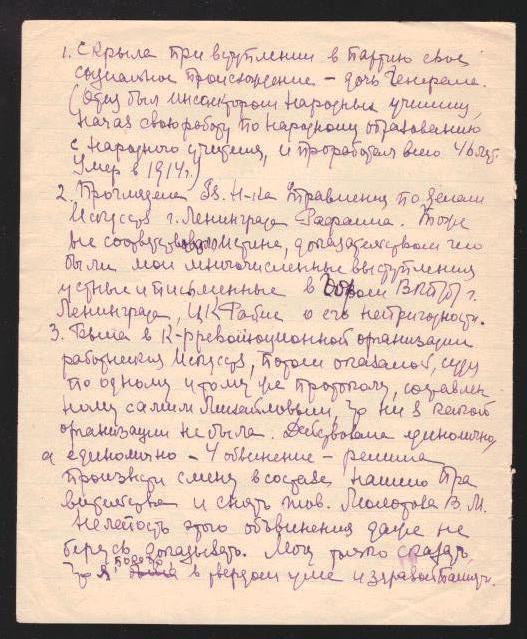 1. Скрыла при вступлении в партию свое
социальное происхождение – дочь генерала.
(Отец был инспектором народных училищ,
начав свою работу по народному образованию
с народного учителя, и проработал всего 46 лет.
Умер в 1914 г.)
2. Проглядела б. Н-ка Управления по делам
Искусств г. Ленинграда Рафаила. Тоже
не соответствовало истине, доказательством чего
были мои многочисленные выступления
устные и письменные в Обком ВКП(б) г.
Ленинграда, ЦК Рабис о его непригодности.
3. Была в К-рреволюционной организации
работников Искусств, потом оказалось,
по одному и тому же протоколу, составлен-
ному самим Михайловым, что ни в какой
организации не была. Действовала единолично,
а единолично – 4 обвинение – решила
произвести смену в составе нашего Пра-
вительства и снять тов. Молотова В. М.
Нелепость этого обвинения даже не
берусь доказывать. Могу только сказать,
что я в твердом уме и здравой памяти.